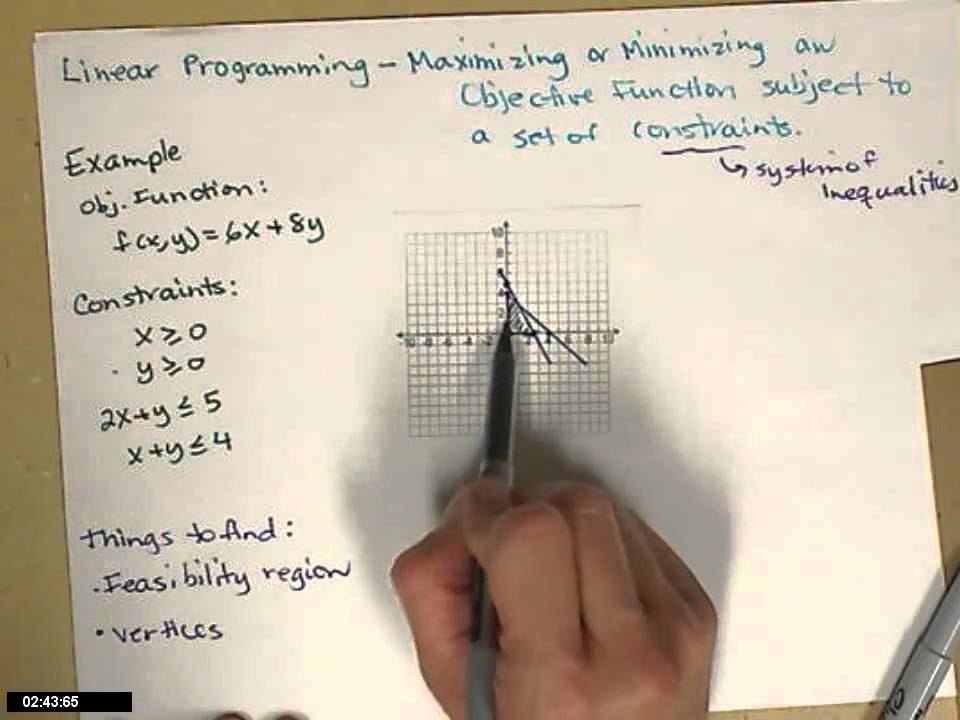 Linear Programming - Maximizing or Minimizing an
Objective Function subject to
a set of constraints.
↳ system of
Inequalities
Example
Obj. Function:
f(x,y) = 6x + 8y
Constraints:
x ≥ 0
y ≥ 0
2x+y ≤ 5
x+y ≤ 4
Things to find:
• Feasibility region
• vertices
10
8
4
2
02:43:65